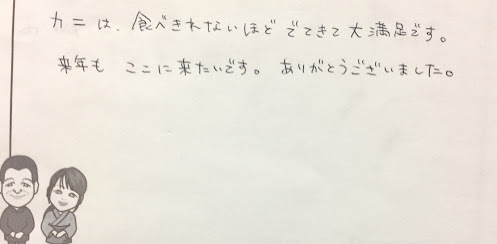 カニは、食べきれないほど でてきて大満足です。
来年も ここに来たいです。 ありがとうございました。